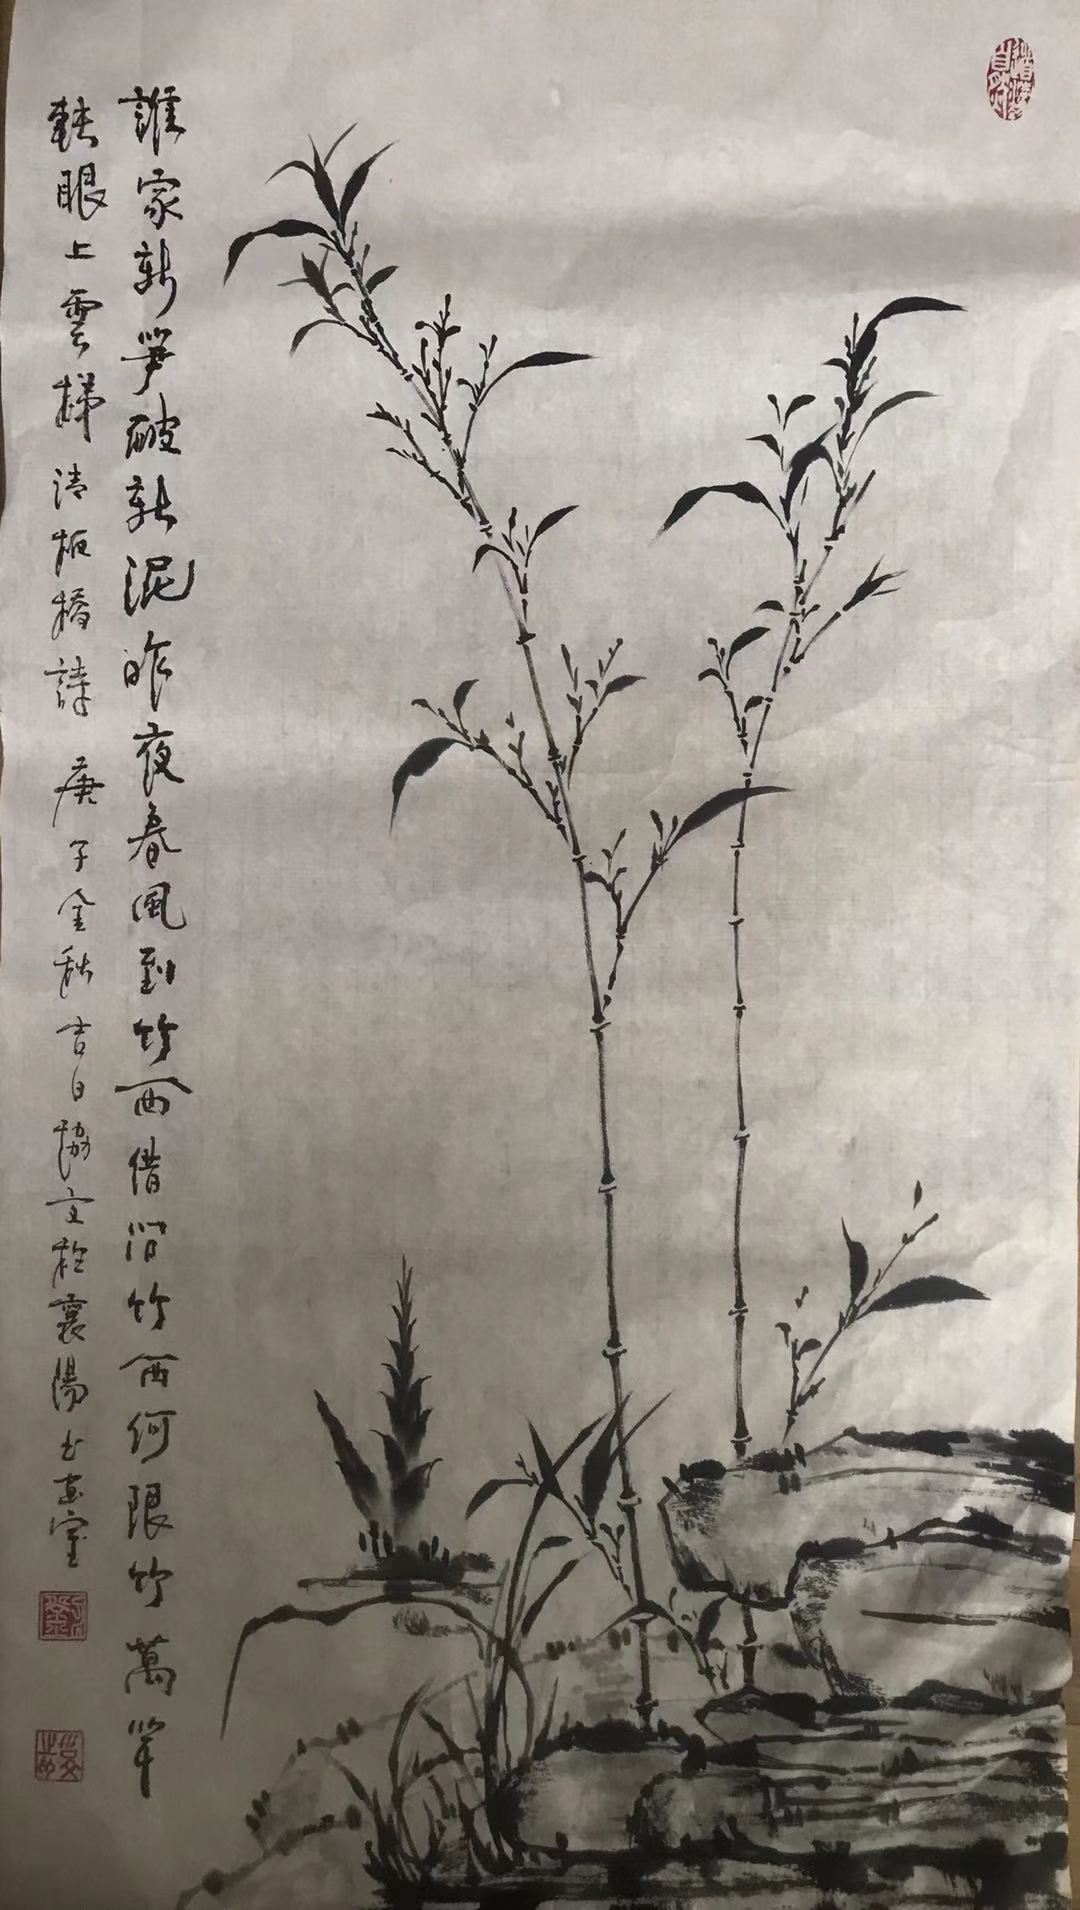 誰家新笋破新泥昨夜春風到竹西借问竹西何限竹萬竿
轉眼上雲梯清板橋詩庚子金秋吉日協文於襄陽书画室